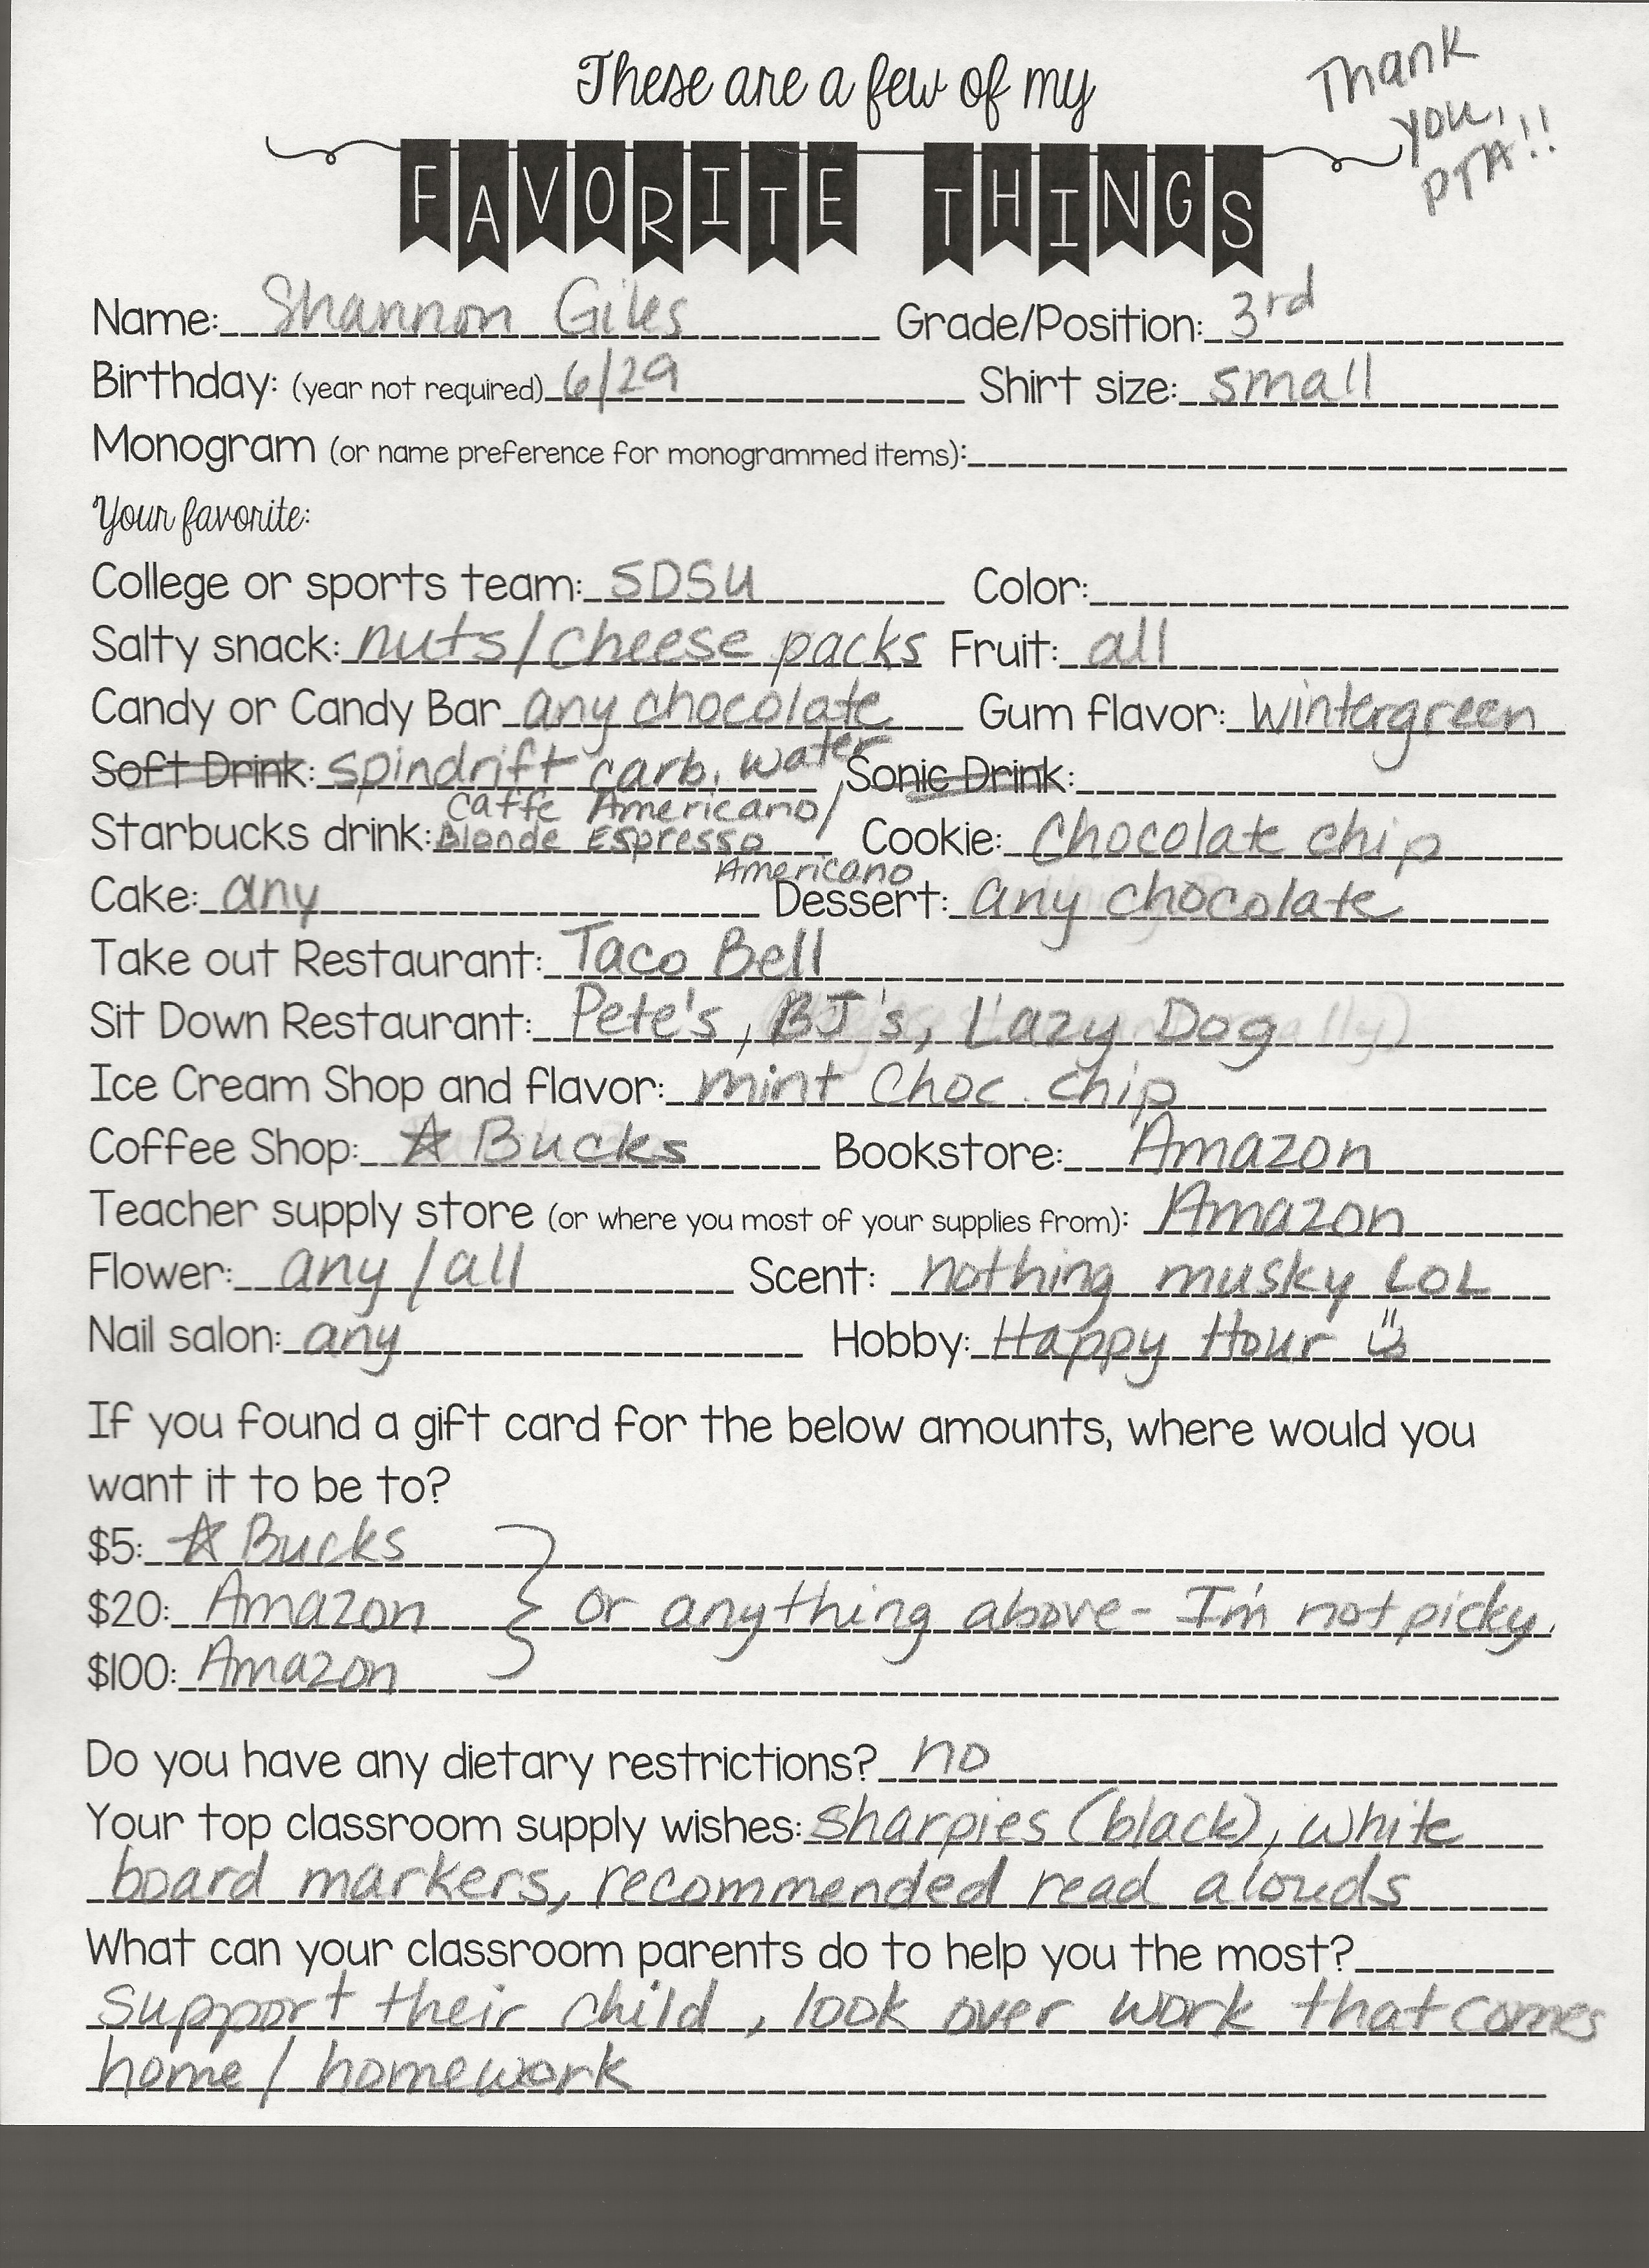 These are a few of my
Thank
you,
PTA!!
FAVORITE THINGS
Name: Shannon Giles Grade/Position: 3rd
Birthday: (year not required) 6/29 Shirt size: small
Monogram (or name preference for monogrammed items):
Your favorite:
College or sports team: SDSU Color:
Salty snack: nuts/cheese packs Fruit: all
Candy or Candy Bar any chocolate Gum flavor: wintergreen
Soft Drink: spindrift carb. water Sonic Drink:
Caffe Americano/
Starbucks drink: Blonde Espresso Cookie: Chocolate chip
Americano
Cake: any Dessert: any chocolate
Take out Restaurant: Taco Bell
Sit Down Restaurant: Pete's, BJ's, Lazy Dog
Ice Cream Shop and flavor: mint Choc. chip
Coffee Shop: ☆ Bucks Bookstore: Amazon
Teacher supply store (or where you most of your supplies from): Amazon
Flower: any/all Scent: nothing musky LOL
Nail salon: any Hobby: Happy Hour
If you found a gift card for the below amounts, where would you
want it to be to?
$5: ☆ Bucks
$20: Amazon } or anything above - I'm not picky.
$100: Amazon
Do you have any dietary restrictions? no
Your top classroom supply wishes: sharpies (black), white
board markers, recommended read alouds
What can your classroom parents do to help you the most?
Support their child, look over work that comes
home/ homework